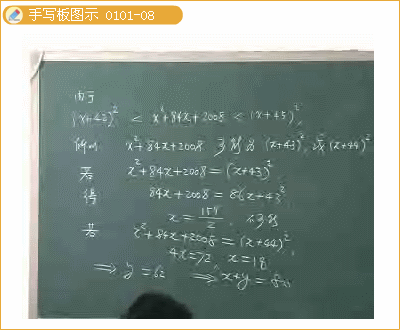 手写板图示 0101-08
由于
(x+42)² < x²+84x+2008 < (x+45)²,
所以 x²+84x+2008 只能为 (x+43)² 或 (x+44)²
若 x²+84x+2008=(x+43)²,
得 84x+2008=86x+43²
x=159/2,
若 x²+84x+2008=(x+44)²,
4x=72, x=18
⇒ y=62 ⇒ x+y=80